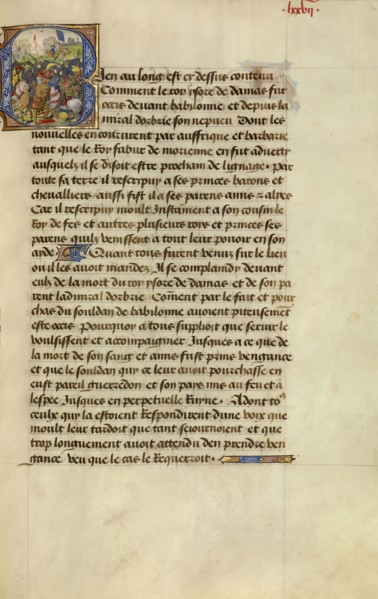 .lxxvii.
Bien au long est cy dessus contenu
Comment le roy ysore de damas fut
occis deuant babilonne et depuis la
miral dorbrie son nepueu Dont les
nouuelles en coururent par auffrique et barbarie
tant que le Roy fabur de morienne en fut aduerty
ausquelz il se disoit estre prochain de lignage . par
toute sa terre il rescripuy a ses princes barons et
cheualliers aussi fist il a ses parens amis et aliez
Car il rescripuy moult Instament a son cousin le
Roy de fes et autres plusieurs roys et princes ses
parens quilz venissent a tout leur pouoir en son
ayde Quant tous furent venus sur le lieu
ou il les auoit mandez Il se complaindy deuant
eulz de la mort du roy ysore de damas et de son pa
rent ladmiral dorbrie Coment par le fait et pour
chas du souldan de babilonne auoient piteusement
este occis Pourquoy a tous supplioit que seruir le
voulsissent et accompaignier Jusques a ce que de
la mort de son sang et amis fust prinse vengance
et que le souldan quy ce leur auoit pourchasse en
eust pareil guerredon et son pays mis au feu et a
lespee Jusques en perpetuelle Ruyne . Adont to9
ceulx quy la estoient Respondirent dune voix que
moult leur tardoit que tant seiournoient et que
trop longuement auoit attendu den prendre ven
gance veu que le cas le Requeroit .